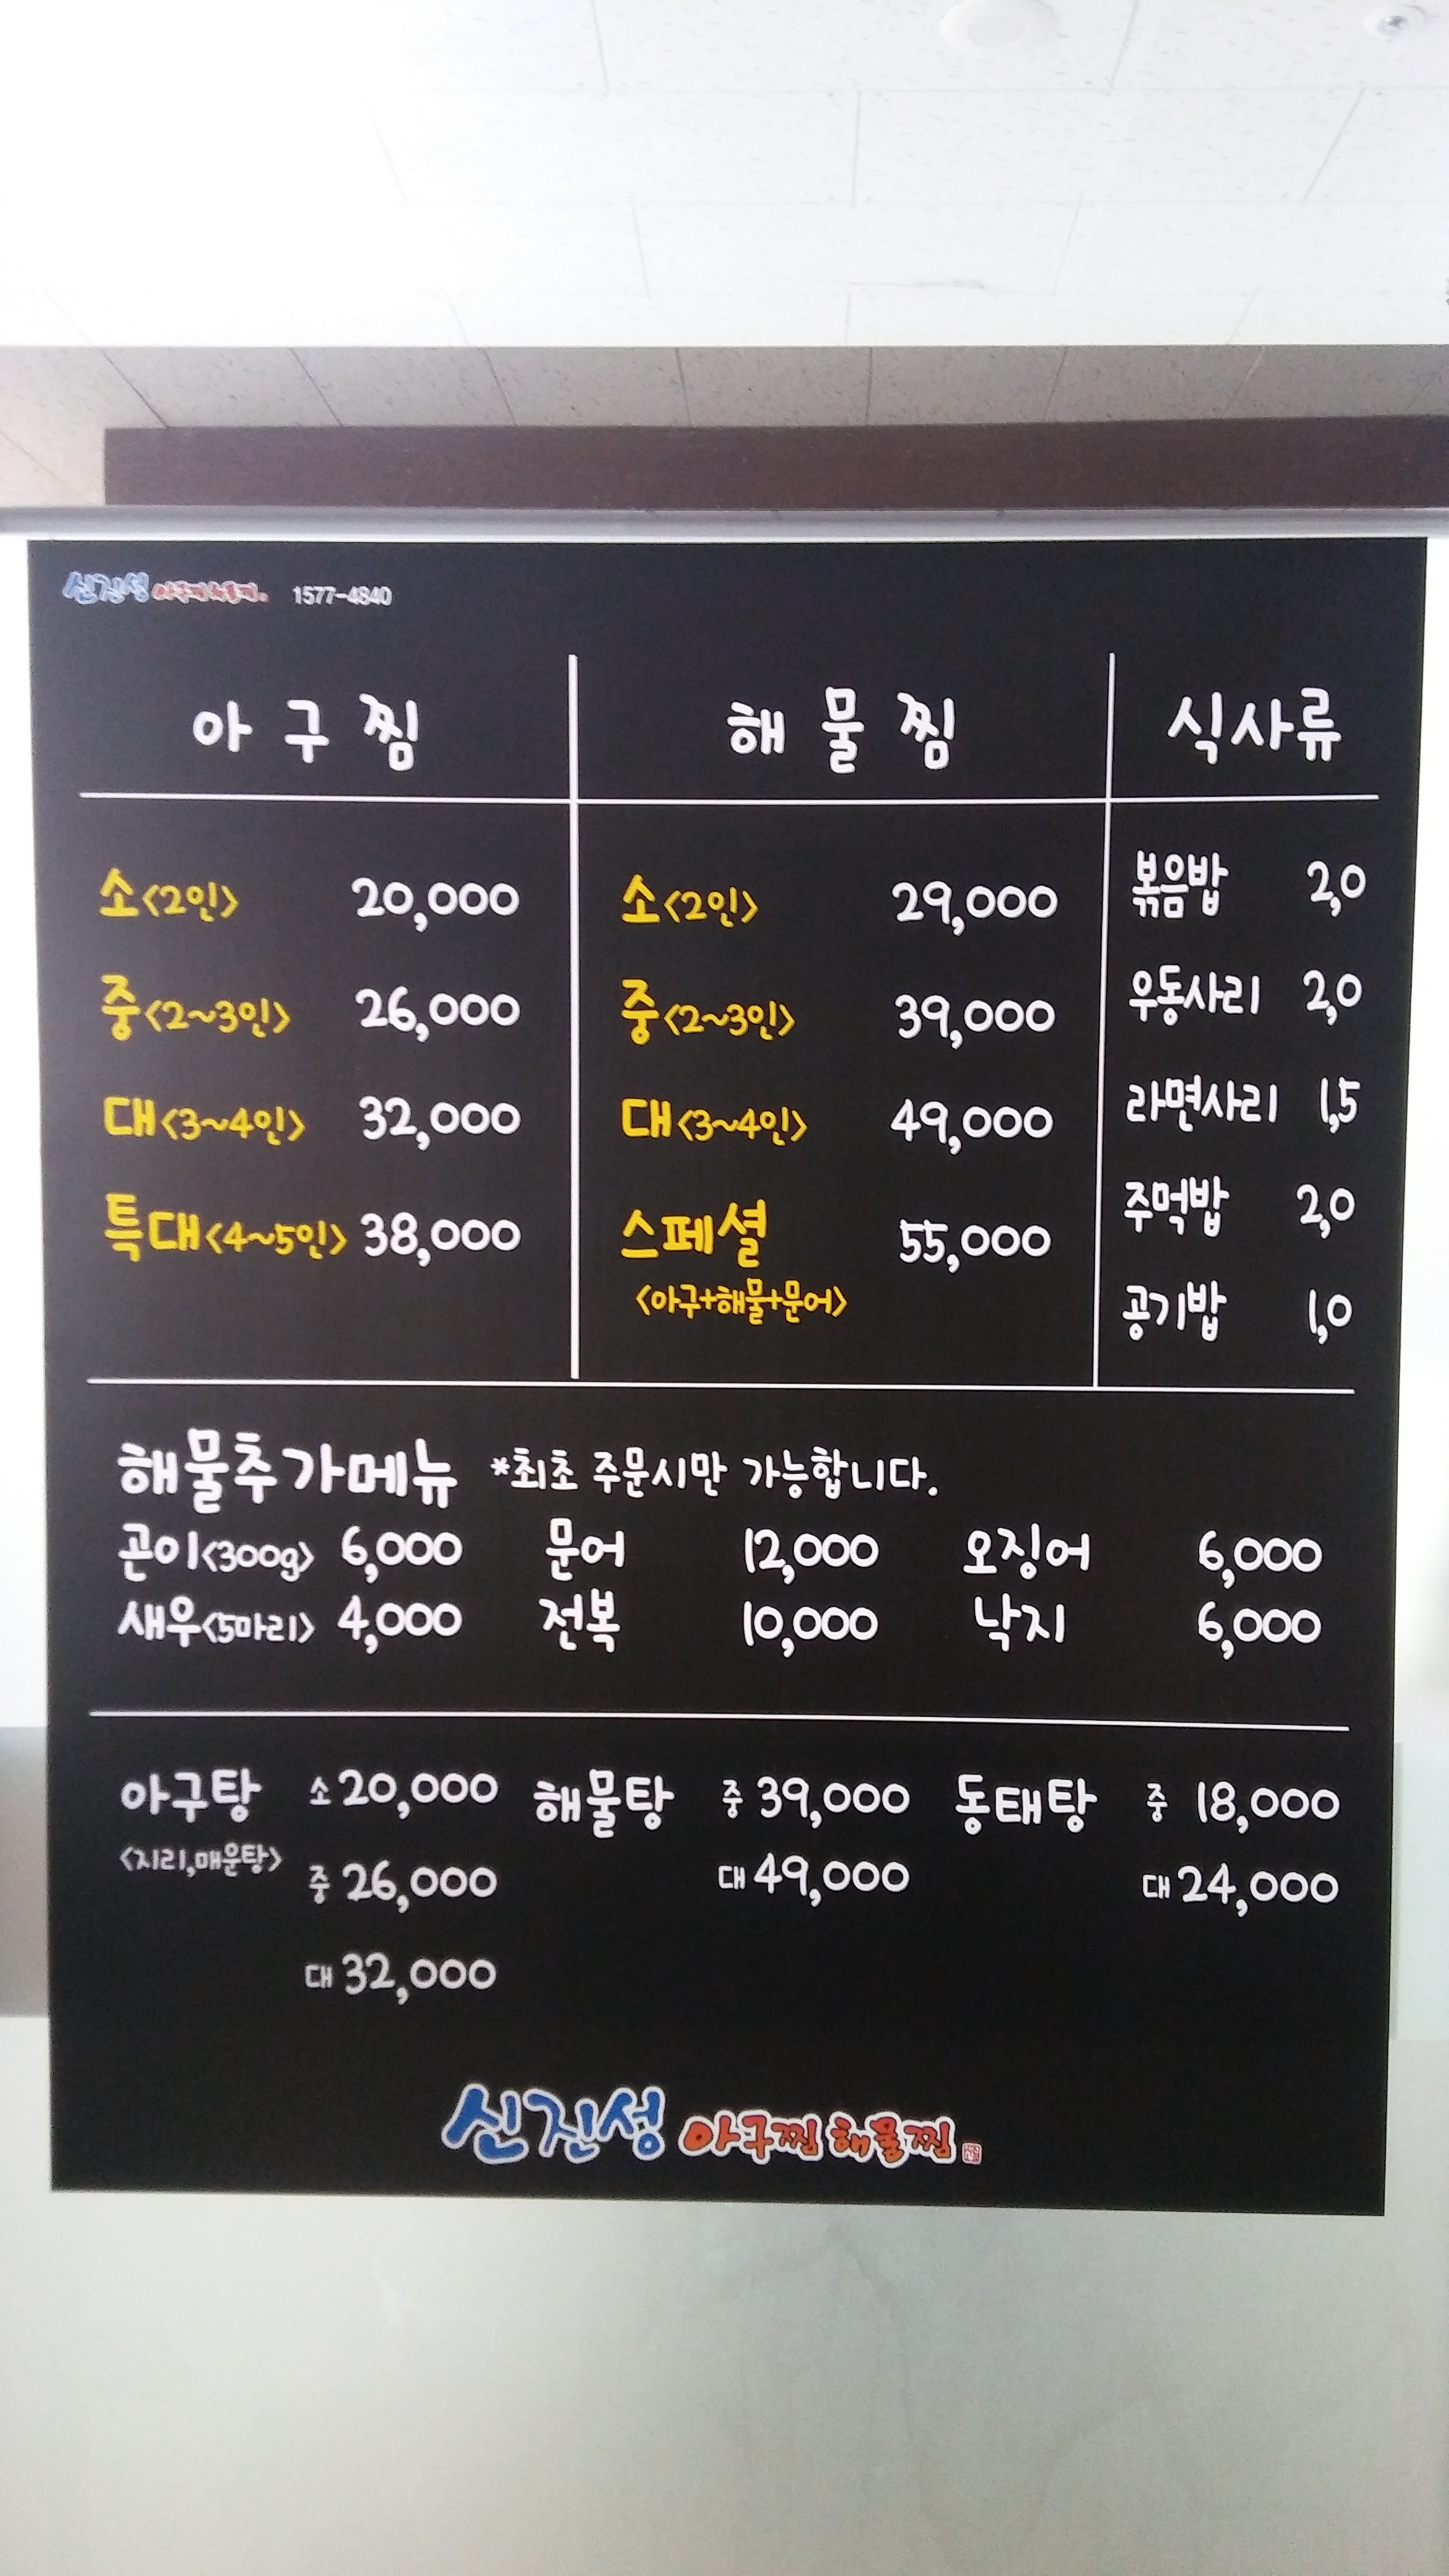 신진성 아구찜 해물찜 1577-4840
아구찜 해물찜 식사류
소<2인> 20,000 소<2인> 29,000 볶음밥 2,0
중<2~3인> 26,000 중<2~3인> 39,000 우동사리 2,0
대<3~4인> 32,000 대<3~4인> 49,000 라면사리 1,5
특대<4~5인> 38,000 스페셜 55,000 주먹밥 2,0
<아구+해물+문어> 공기밥 1,0
해물추가메뉴 *최초 주문시만 가능합니다.
곤이<300g> 6,000 문어 12,000 오징어 6,000
새우<5마리> 4,000 전복 10,000 낙지 6,000
아구탕 소 20,000 해물탕 중 39,000 동태탕 중 18,000
<지리,매운탕> 중 26,000 대 49,000 대 24,000
대 32,000
신진성 아구찜 해물찜